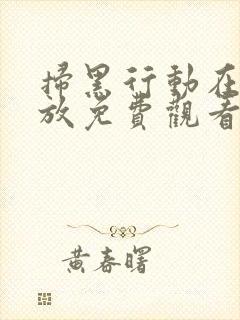 掃黑行動在
放免費觀看
黃春曙